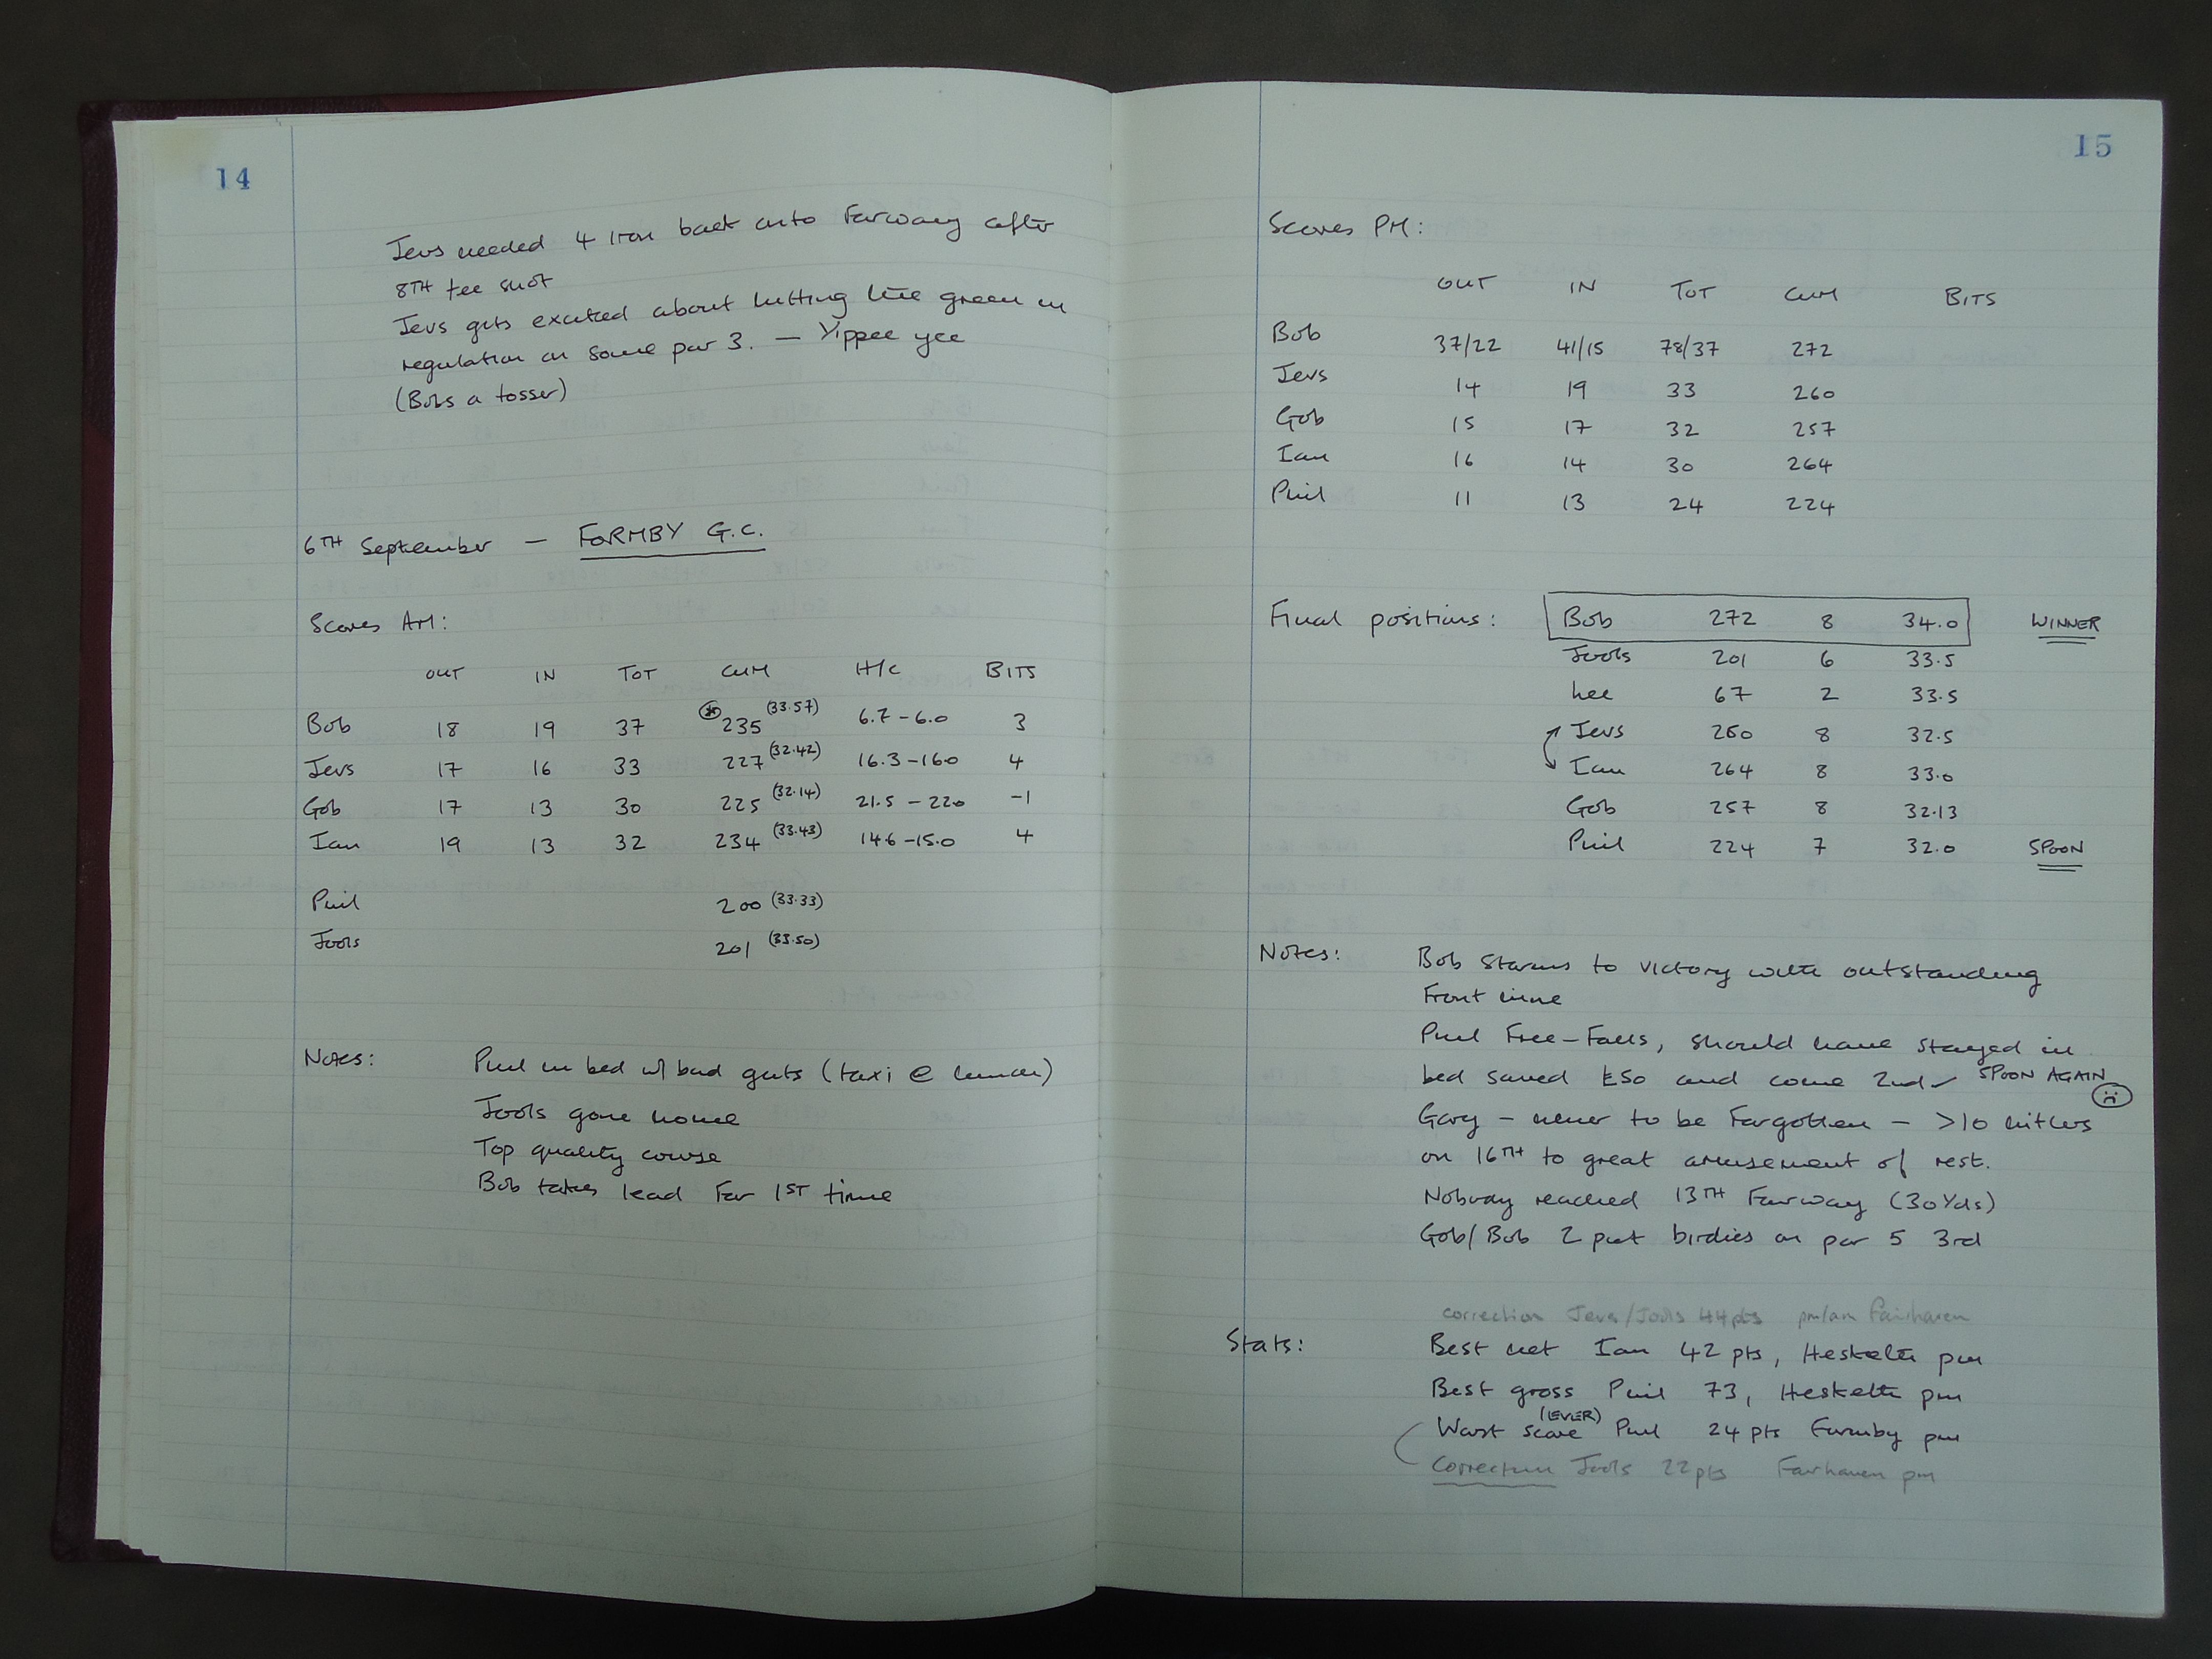 14
Jevs needed 4 iron back onto Farway after
8TH tee shot
Jevs gets excited about hitting the green in
regulation on some par 3. — Yippee yee
(Bobs a tosser)
6TH September — FORMBY G.C.
Scores AM:
OUT IN TOT CUM H/C BITS
Bob 18 19 37 * 235 (33.57) 6.7 - 6.0 3
Jevs 17 16 33 227 (32.42) 16.3 - 16.0 4
Gob 17 13 30 225 (32.14) 21.5 - 22.0 -1
Ian 19 13 32 234 (33.43) 14.6 - 15.0 4
Phil 200 (33.33)
Jools 201 (33.50)
Notes: Phil in bed w/ bad guts (taxi @ lunch)
Jools gone home
Top quality course
Bob takes lead For 1ST time
15
Scores PM:
OUT IN TOT CUM BITS
Bob 37/22 41/15 78/37 272
Jevs 14 19 33 260
Gob 15 17 32 257
Ian 16 14 30 264
Phil 11 13 24 224
Final positions: Bob 272 8 34.0 WINNER
Jools 201 6 33.5
Lee 67 2 33.5
Jevs 260 8 32.5
Ian 264 8 33.0
Gob 257 8 32.13
Phil 224 7 32.0 SPOON
Notes: Bob Storms to victory with outstanding
Front nine
Phil Free-Falls, should have stayed in
bed saved £50 and come 2nd SPOON AGAIN
Gary — never to be Forgotten — >10 hitlers
on 16TH to great amusement of rest.
Nobody reached 13TH Fairway (30Yds)
Gob/Bob 2 putt birdies on par 5 3rd
correction Jevs/Jools 44pts pm/am Fairhaven
Stats: Best net Ian 42 pts, Hesketh pm
Best gross Phil 73, Hesketh pm
Worst score (EVER) Phil 24 pts Formby pm
Correction Jools 22pts Fairhaven pm